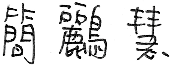 簡 鸝 慧